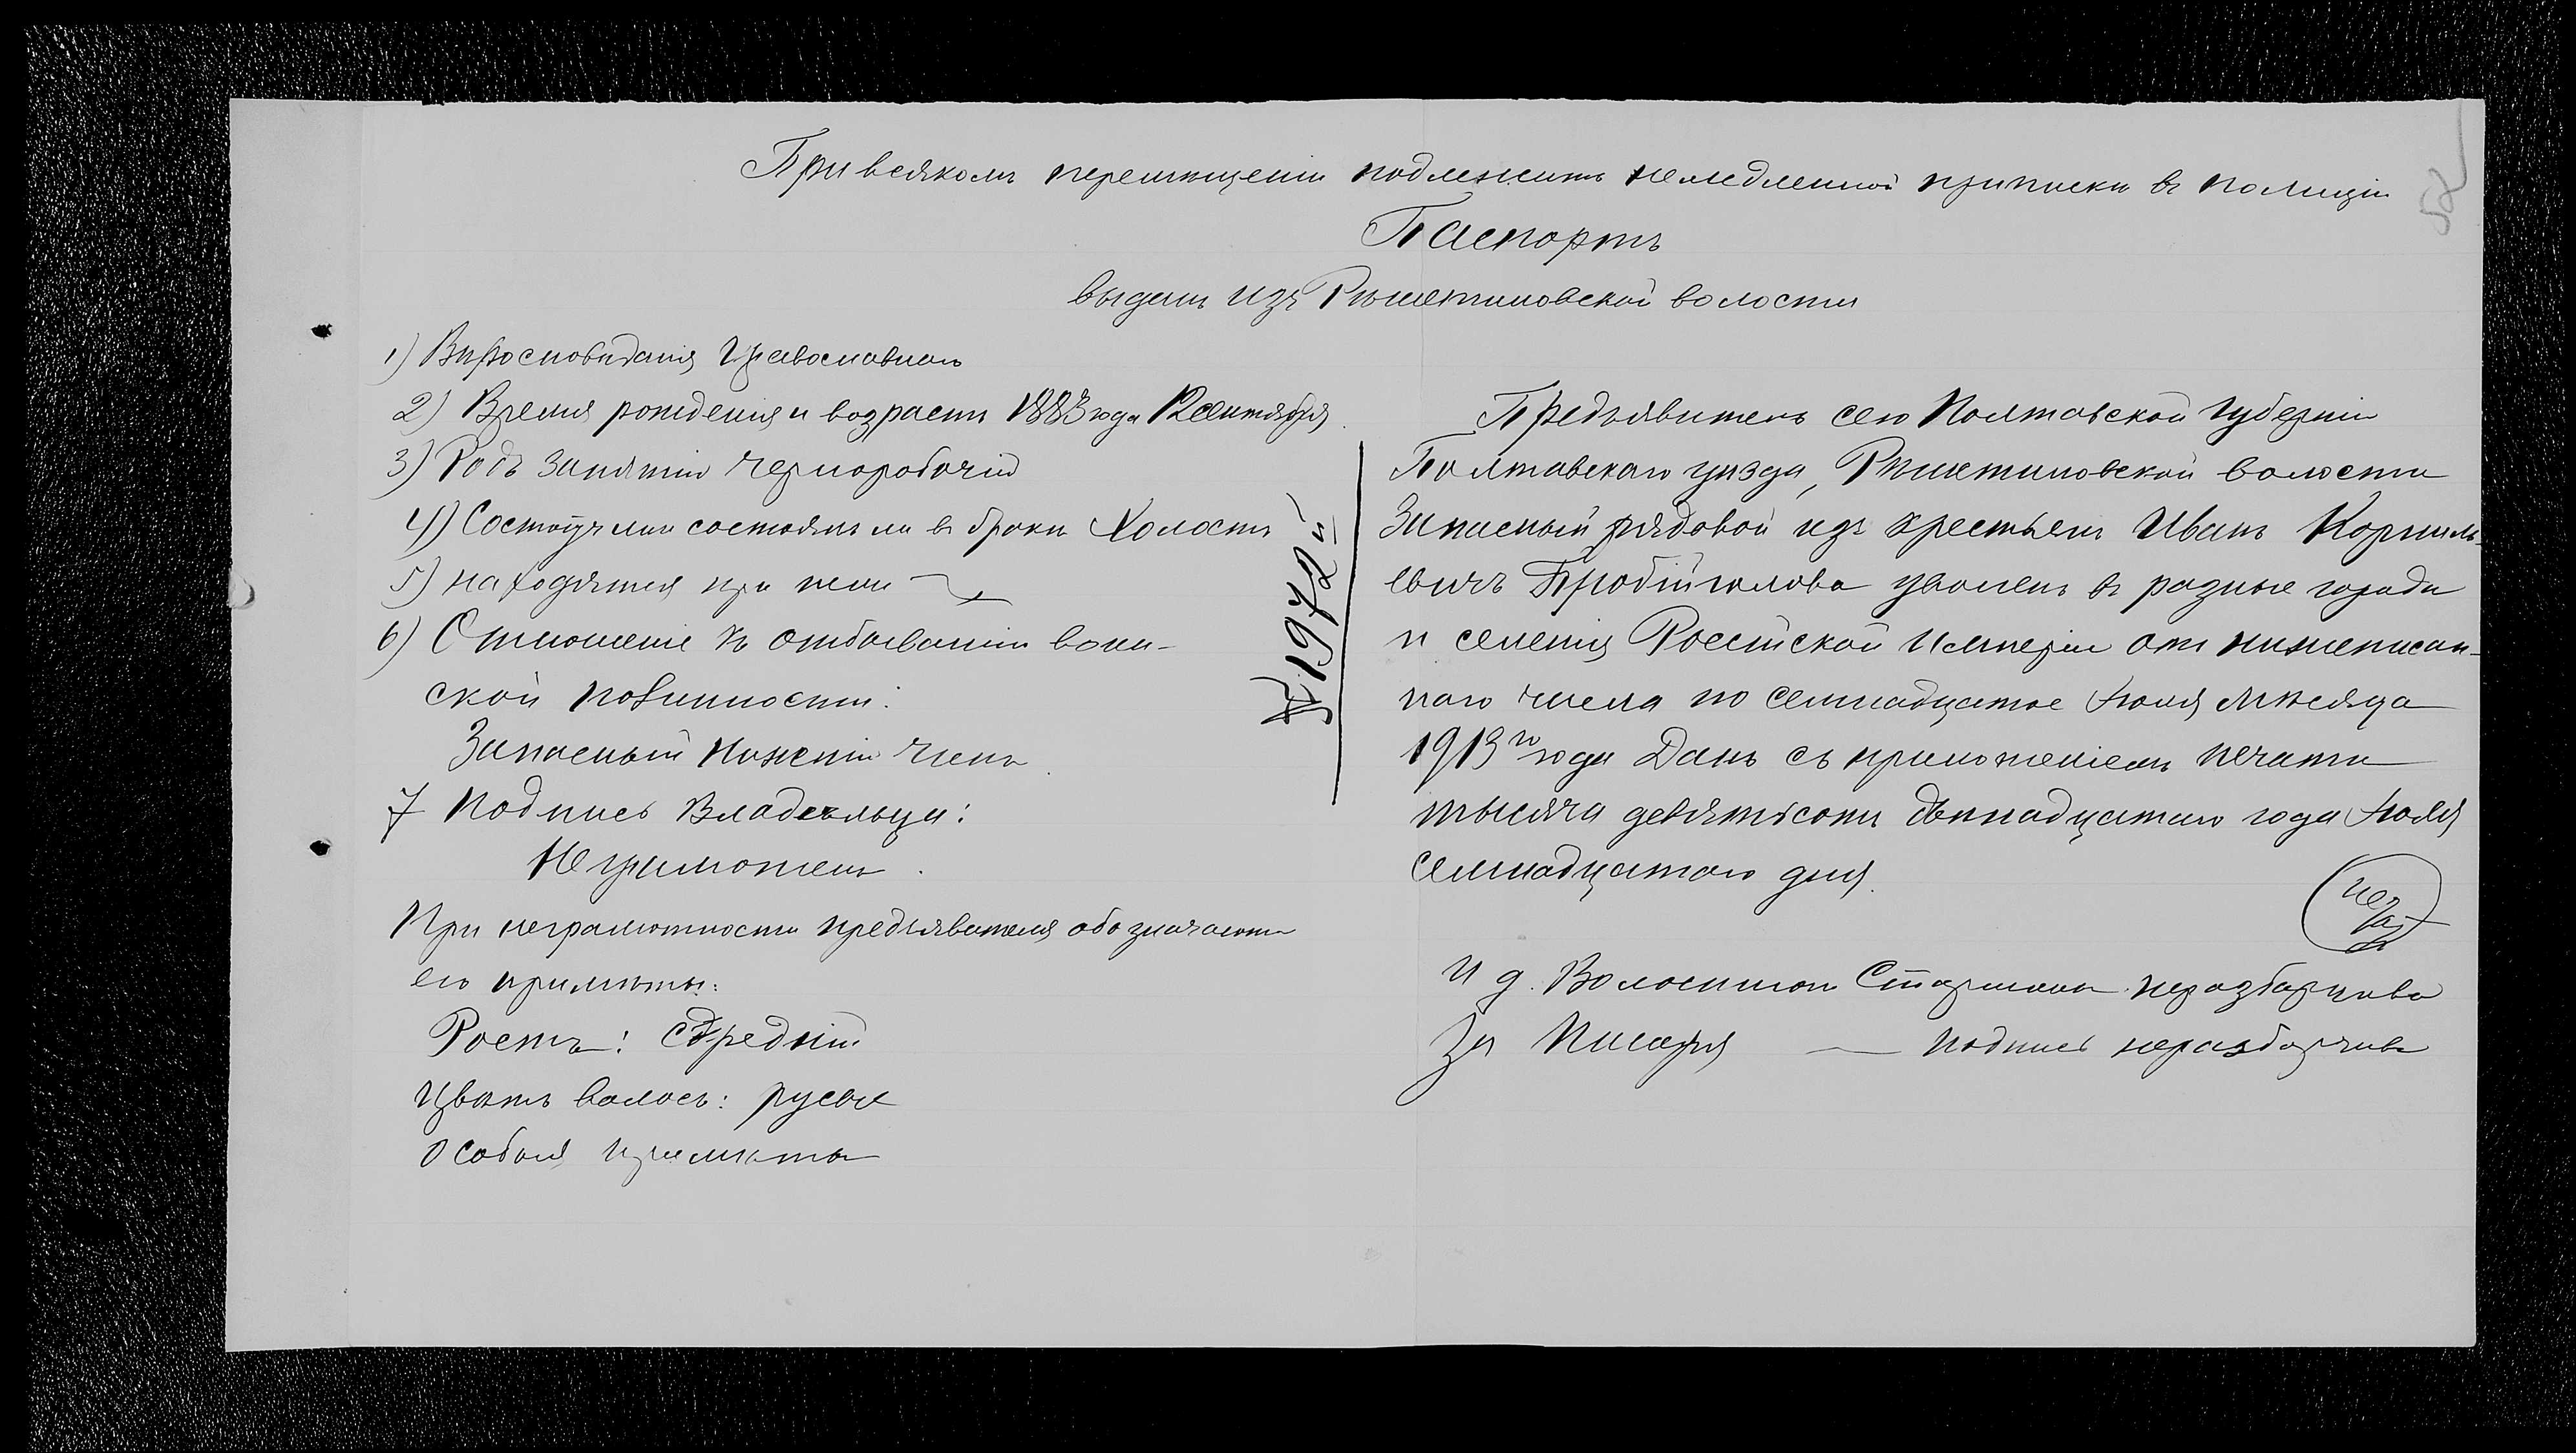 52
При всякомъ перемѣщеніи подлежитъ немедленной приписки въ полиціи
Паспортъ
выданъ изъ Рѣшетиловской волости
1) Вѣроисповѣданія Православнаго
2) Время рожденія и возрастъ 1883 года 12 сентября
3) Родъ занятій чернорабочій
4) Состоитъ или состоялъ ли въ бракѣ Холостъ
5) находятся при немъ —
6) Отношеніе къ отбыванію воин-
ской повинности:
Запасный Нижній Чинъ
7 Подпись Владѣльца:
Неграмотенъ.
При неграмотности предъявителя обозначаются
его примѣты:
Ростъ: Средній
Цвѣтъ волосъ: русые
Особыя примѣты
№ 1972
Предъявитель сего Полтавской Губерніи
Полтавскаго уѣзда, Рѣшетиловской волости
Запасный рядовой изъ крестьянъ Иванъ Корниль-
евичъ Пробійголова уволенъ въ разные города
и селенія Россійской Имперіи отъ нижеписан-
наго числа по семнадцатое Іюля мѣсяца
1913го года Данъ съ приложеніемъ печати
тысяча девятьсотъ двѣнадцатаго года Іюля
семнадцатого дня.
печать
И д. Волостного Старшины неразборчиво
За Писаря — подпись неразборчива